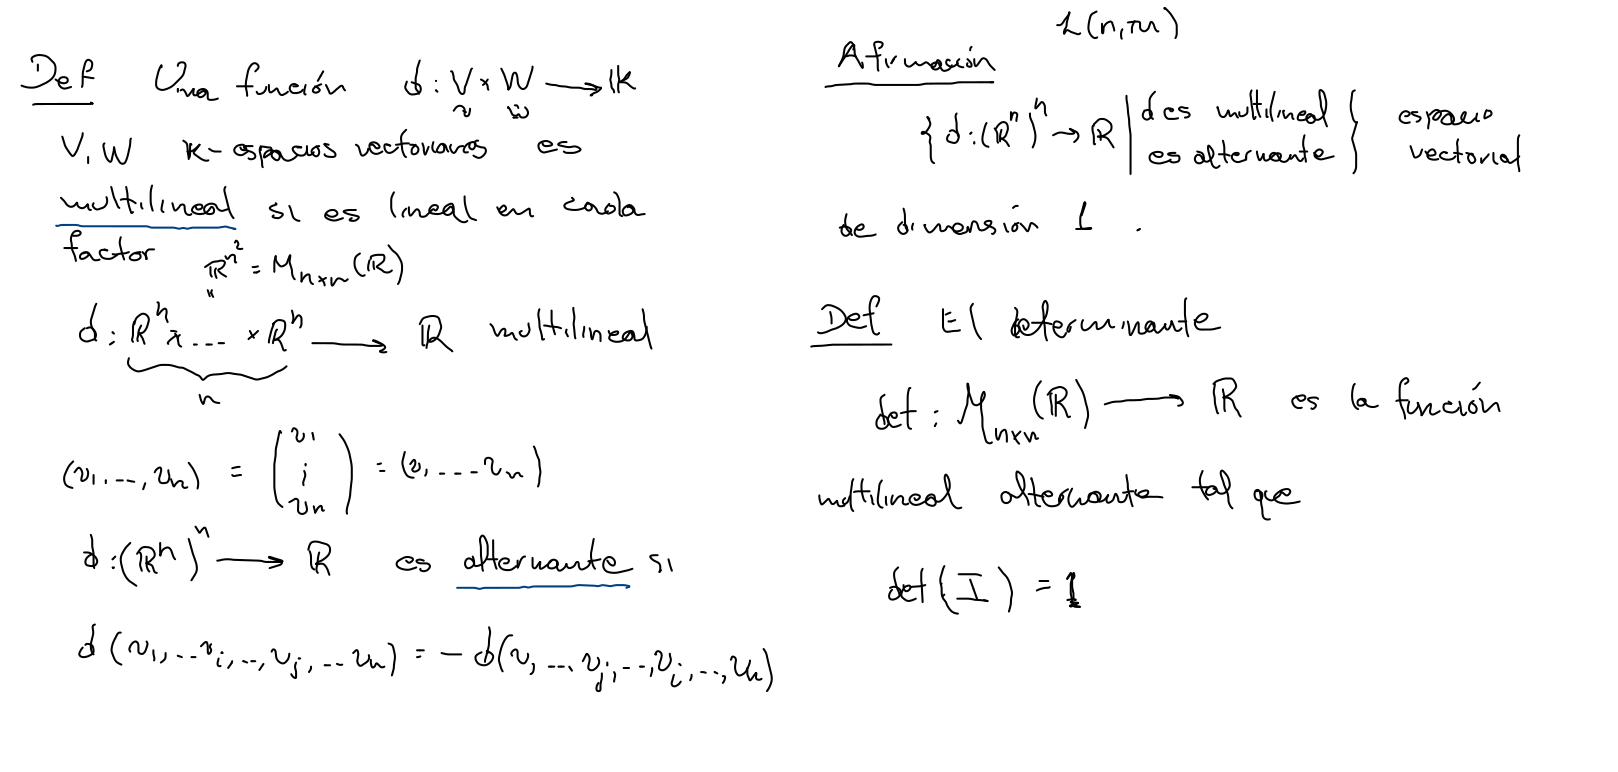 Def Una función d: V × W → K
v w
V, W K-espacios vectoriales es
multilineal si es lineal en cada
factor ℝ^{n²} = M_{n×n}(ℝ)
d: ℝⁿ × ... × ℝⁿ → ℝ multilineal
n
(v₁, ..., vₙ) = (v₁ ⋮ vₙ) = (v₁ ... vₙ)
d: (ℝⁿ)ⁿ → ℝ es alternante si
d(v₁, ... vᵢ, .., vⱼ, ... vₙ) = - d(v₁, ... vⱼ, ..., vᵢ, .., vₙ)
L(n, m)
Afirmación
{ d: (ℝⁿ)ⁿ → ℝ | d es multilineal es alternante } espacio vectorial
de dimensión 1 .
Def El determinante
det: M_{n×n}(ℝ) → ℝ es la función
multilineal alternante tal que
det(I) = 1